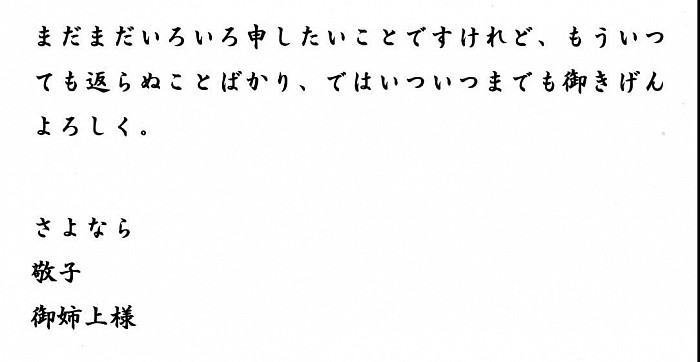 まだまだいろいろ申したいことですけれど、もういつ
ても返らぬことばかり、ではいついつまでも御きげん
よろしく。
さよなら
敬子
御姉上様